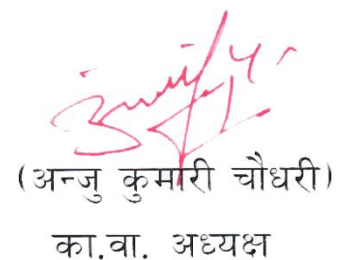 (अन्जु कुमारी चौधरी)
का.वा. अध्यक्ष